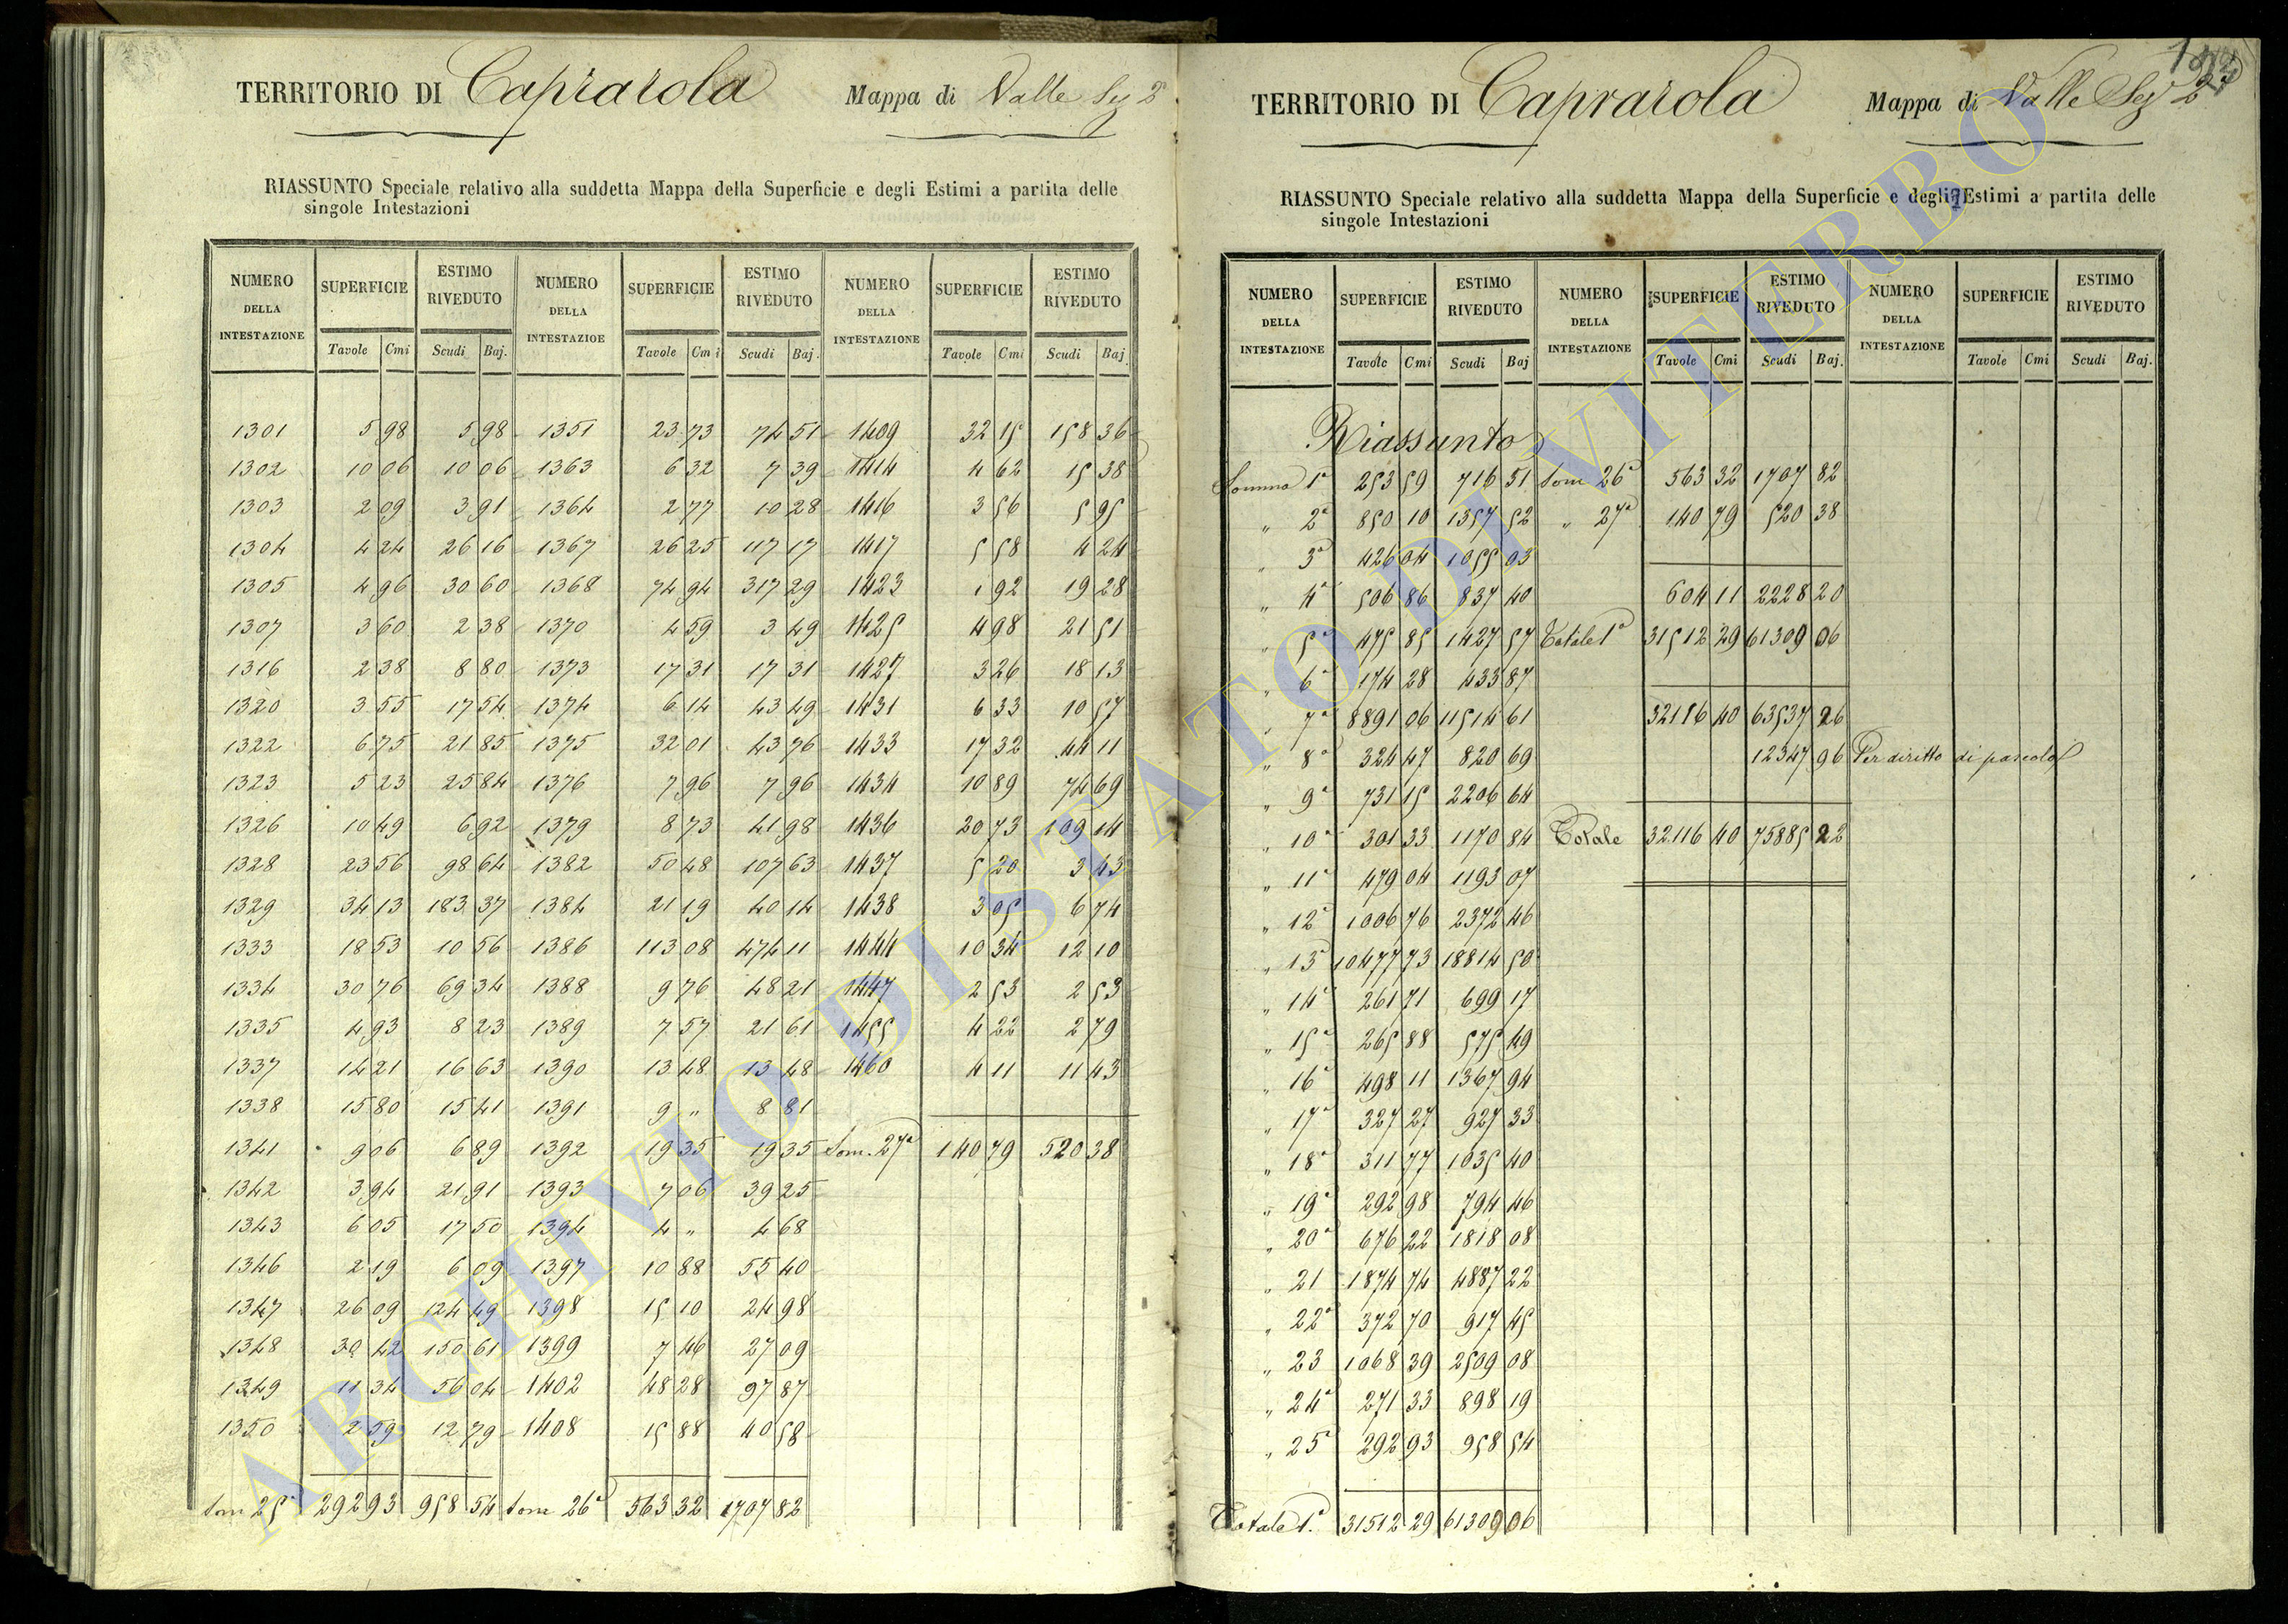 TERRITORIO DI Caprarola Mappa di Valle Sez 2ª
RIASSUNTO Speciale relativo alla suddetta Mappa della Superficie e degli Estimi a partita delle
singole Intestazioni
NUMERO DELLA INTESTAZIONE SUPERFICIE ESTIMO RIVEDUTO NUMERO DELLA INTESTAZIOE SUPERFICIE ESTIMO RIVEDUTO NUMERO DELLA INTESTAZIONE SUPERFICIE ESTIMO RIVEDUTO
Tavole Cmi Scudi Baj. Tavole Cmi Scudi Baj. Tavole Cmi Scudi Baj
1301 5 98 5 98 1351 23 73 74 51 1409 32 15 158 36
1302 10 06 10 06 1363 6 32 7 39 1414 4 62 15 38
1303 2 09 3 91 1364 2 77 10 28 1416 3 56 5 95
1304 4 24 26 16 1367 26 25 117 17 1417 5 58 4 24
1305 4 96 30 60 1368 74 94 317 29 1423 1 92 19 28
1307 3 60 2 38 1370 4 59 3 49 1425 4 98 21 51
1316 2 38 8 80 1373 17 31 17 31 1427 3 26 18 13
1320 3 55 17 54 1374 6 14 43 49 1431 6 33 10 57
1322 6 75 21 85 1375 32 01 43 76 1433 17 32 44 11
1323 5 23 25 84 1376 7 96 7 96 1434 10 89 74 69
1326 10 49 6 92 1379 8 73 41 98 1436 20 73 109 14
1328 23 56 98 64 1382 50 48 107 63 1437 5 20 3 43
1329 34 13 183 37 1384 21 19 40 14 1438 3 05 6 74
1333 18 53 10 56 1386 113 08 474 11 1444 10 34 12 10
1334 30 76 69 34 1388 9 76 48 21 1447 2 53 2 53
1335 4 93 8 23 1389 7 57 21 61 1455 4 22 2 79
1337 14 21 16 63 1390 13 48 13 48 1460 4 11 11 43
1338 15 80 15 41 1391 9 " 8 81
1341 9 06 6 89 1392 19 35 19 35 Som. 27ª 140 79 520 38
1342 3 94 21 91 1393 7 06 39 25
1343 6 05 17 50 1394 4 " 4 68
1346 2 19 6 09 1397 10 88 55 40
1347 26 09 124 49 1398 15 10 24 98
1348 30 42 150 61 1399 7 46 27 09
1349 11 34 56 04 1402 48 28 97 87
1350 2 59 12 79 1408 15 88 40 58
Som 25ª 292 93 958 54 Som 26ª 563 32 1707 82
TERRITORIO DI Caprarola Mappa di Valle Sez 2ª
RIASSUNTO Speciale relativo alla suddetta Mappa della Superficie e degli Estimi a partita delle
singole Intestazioni
NUMERO DELLA INTESTAZIONE SUPERFICIE ESTIMO RIVEDUTO NUMERO DELLA INTESTAZIONE SUPERFICIE ESTIMO RIVEDUTO NUMERO DELLA INTESTAZIONE SUPERFICIE ESTIMO RIVEDUTO
Tavole Cmi Scudi Baj Tavole Cmi Scudi Baj. Tavole Cmi Scudi Baj.
Riassunto
Somma 1ª 253 59 716 51 Som 26ª 563 32 1707 82
" 2ª 850 10 1357 52 " 27ª 140 79 520 38
" 3ª 426 04 1055 03
" 4ª 506 86 837 40 604 11 2228 20
" 5ª 475 85 1427 57 Totale 1º 31512 29 61309 06
" 6ª 174 28 433 87
" 7ª 8891 06 11514 61 32116 40 63537 26
" 8ª 324 47 820 69 12347 96 Per diritto di pascolo
" 9ª 731 15 2206 64
" 10ª 301 33 1170 84 Totale 32116 40 75885 22
" 11ª 479 04 1193 07
" 12ª 1006 76 2372 46
" 13ª 10477 73 18814 50
" 14ª 261 71 699 17
" 15ª 265 88 575 49
" 16ª 498 11 1367 94
" 17ª 327 27 927 33
" 18ª 311 77 1035 40
" 19ª 292 98 794 46
" 20ª 676 22 1818 08
" 21 1874 74 4887 22
" 22ª 372 70 917 45
" 23 1068 39 2509 08
" 24ª 271 33 898 19
" 25ª 292 93 958 54
Totale 1º. 31512 29 61309 06
ARCHIVIO DI STATO DI VITERBO